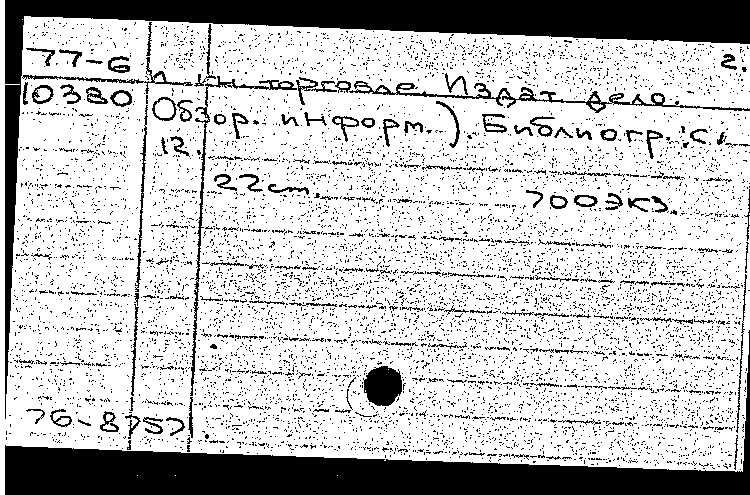 2.
77-6 и кн. торговле. Издат. дело.
10380 Обзор. информ.). Библиогр.: с.
12.
22 см. 700 экз.
76-8757